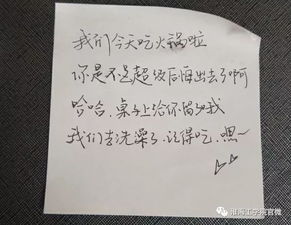 我们今天吃火锅啦
你是不是超级后悔出去了啊
哈哈,桌子上给你留了哦
我们去洗澡了,记得吃,嘿~
淮海工学院官微